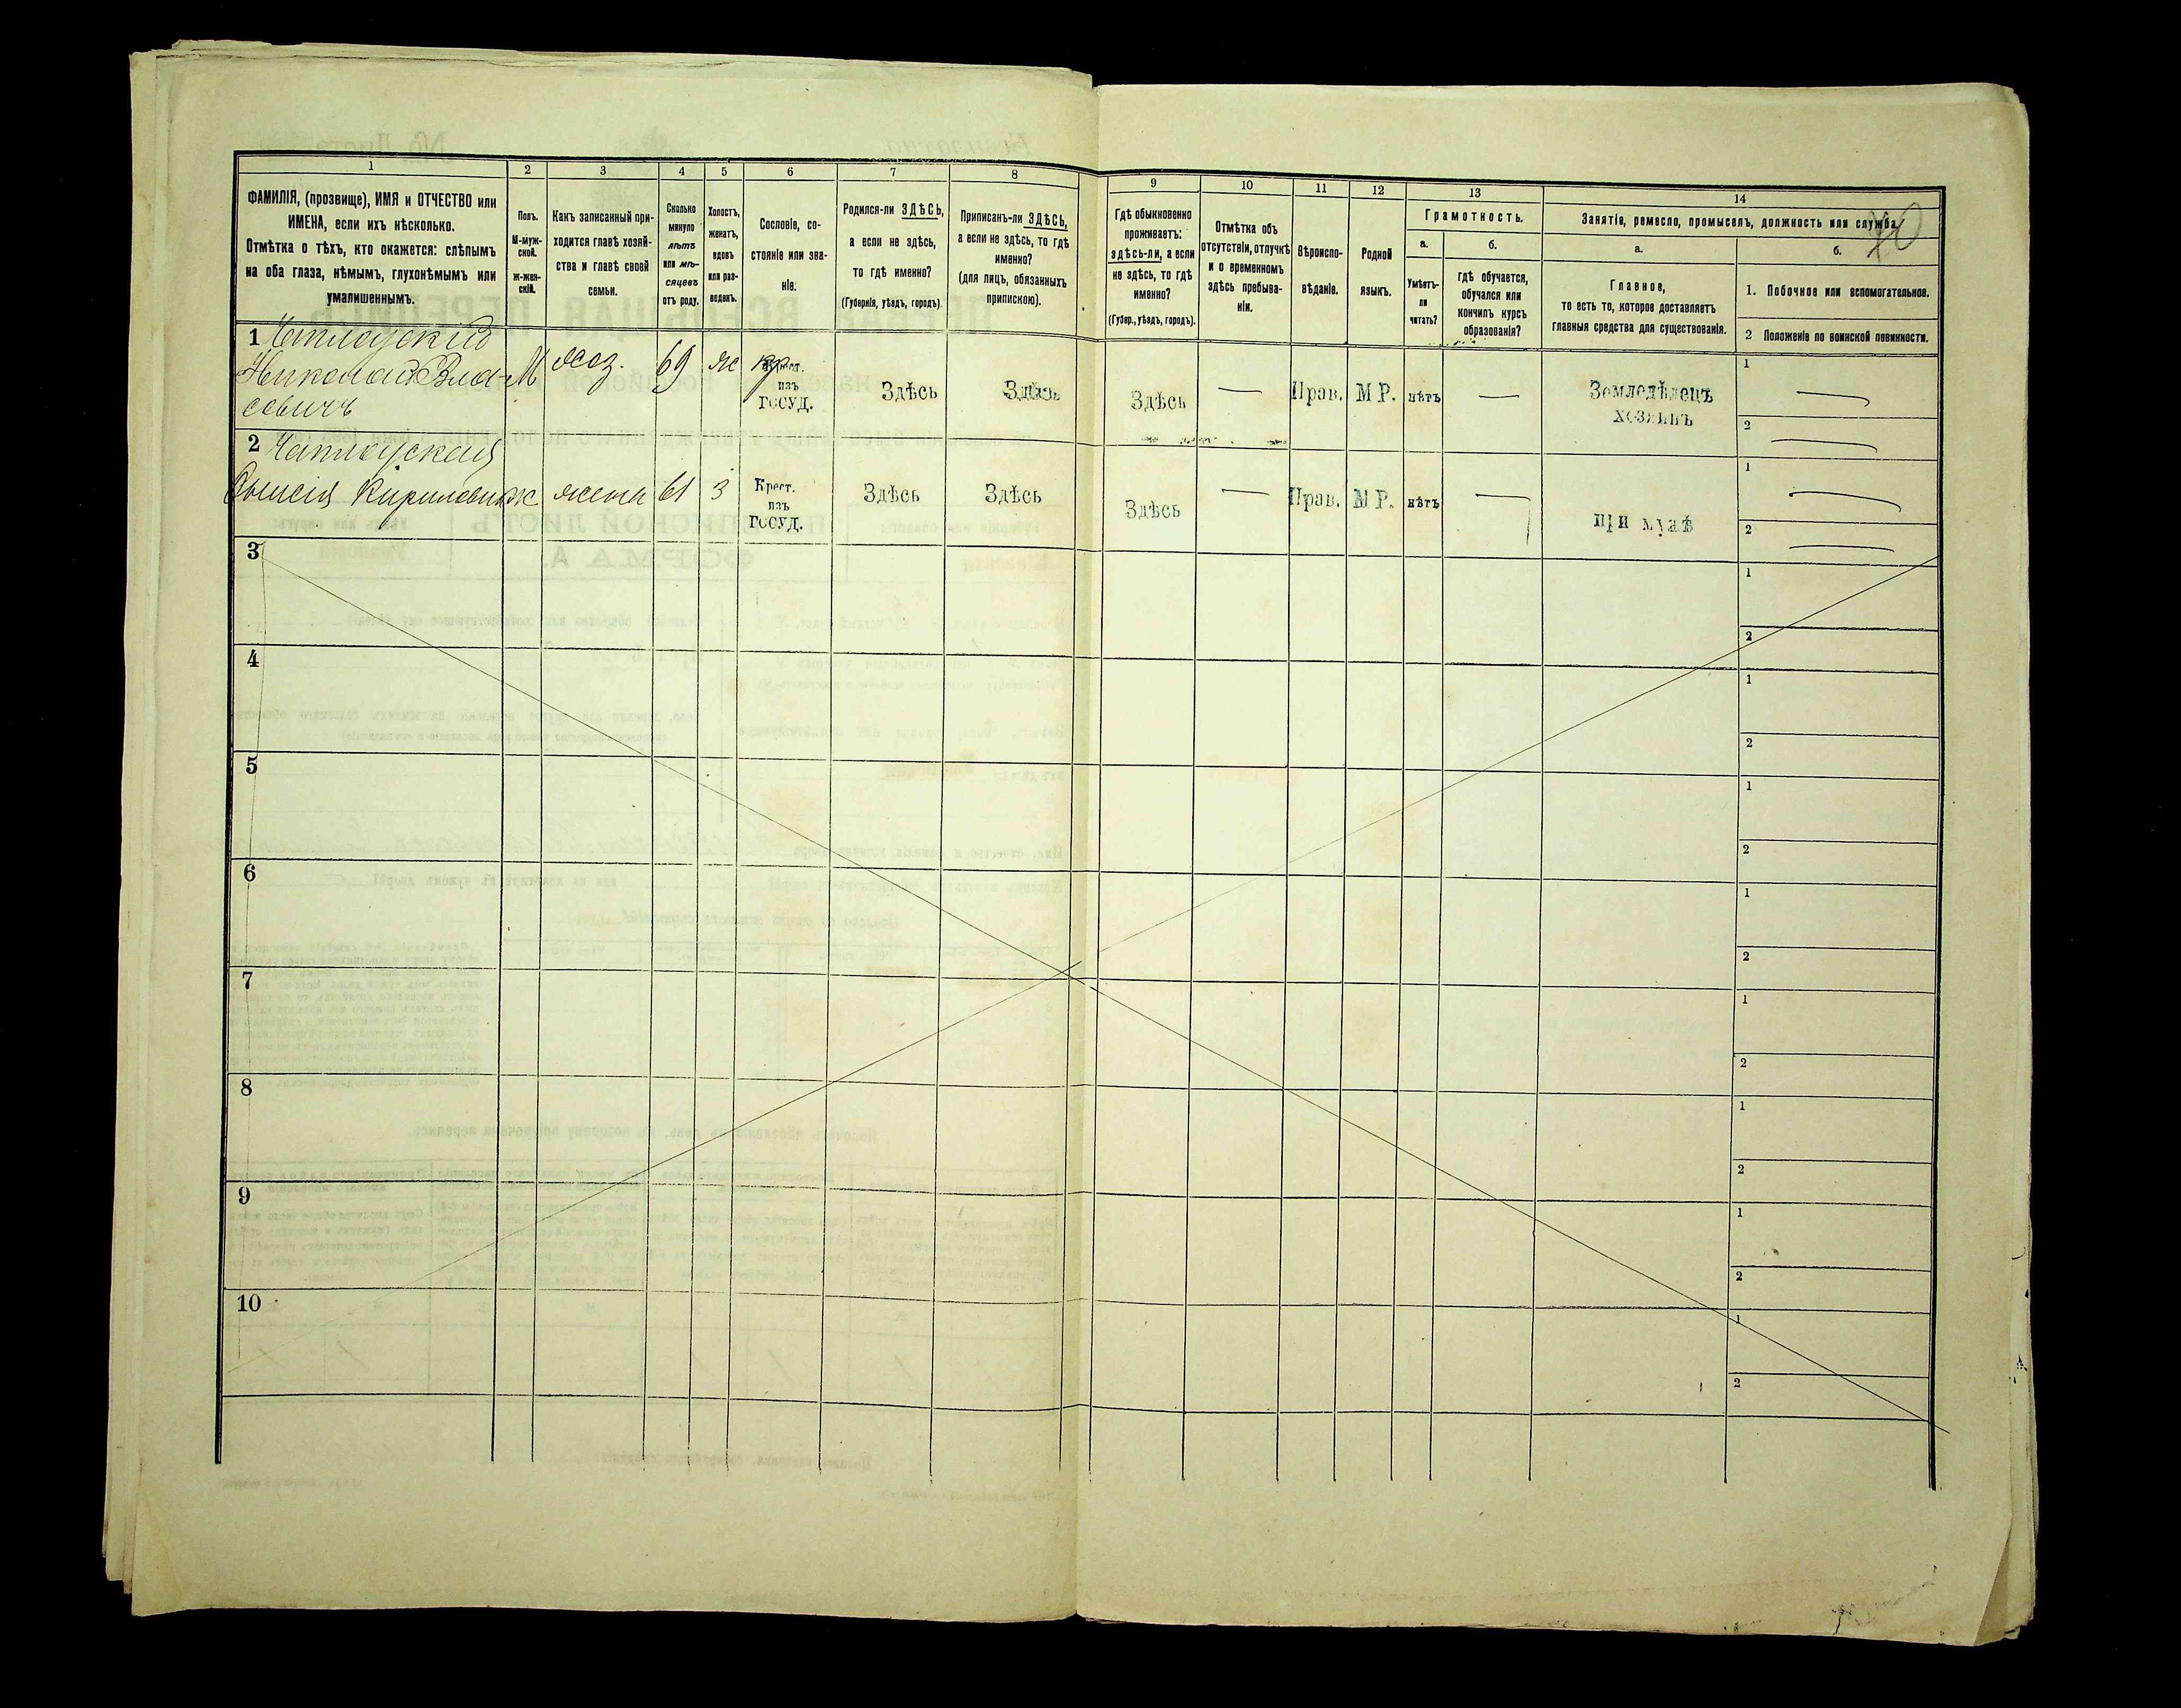 1 2 3 4 5 6 7 8 9 10 11 12 13 14
ФАМИЛІЯ, (прозвище), ИМЯ и ОТЧЕСТВО или
ИМЕНА, если ихъ нѣсколько.
Отмѣтка о тѣхъ, кто окажется: слѣпымъ
на оба глаза, нѣмымъ, глухонѣмымъ или
умалишеннымъ.
Полъ.
М-муж-
ской.
ж-жен-
скій.
Какъ записанный при-
ходится главѣ хозяй-
ства и главѣ своей
семьи.
Сколько
минуло
лѣтъ
или мѣ-
сяцевъ
отъ роду.
Холостъ,
женатъ,
вдовъ
или раз-
веденъ.
Сословіе, со-
стояніе или зва-
ніе.
Родился-ли ЗДѢСЬ,
а если не здѣсь,
то гдѣ именно?
(Губернія, уѣздъ, городъ).
Приписанъ-ли ЗДѢСЬ,
а если не здѣсь, то гдѣ
именно?
(для лицъ, обязанныхъ
припискою).
Гдѣ обыкновенно
проживаетъ:
здѣсь-ли, а если
не здѣсь, то гдѣ
именно?
(Губер., уѣздъ, городъ).
Отмѣтка объ
отсутствіи, отлучкѣ
и о временномъ
здѣсь пребыва-
ніи.
Вѣроиспо-
вѣданіе.
Родной
языкъ.
Грамотность.
а. б.
Умѣетъ-
ли
читать?
гдѣ обучается,
обучался или
кончилъ курсъ
образованія?
Занятіе, ремесло, промыселъ, должность или служба.
а. б.
Главное,
то есть то, которое доставляетъ
главныя средства для существованія.
1. Побочное или вспомогательное.
2 Положеніе по воинской повинности.
1
Николай Вла-
совичъ
М хоз. 69 ж
Крест.
изъ
ГОСУД.
Здѣсь Здѣсь Здѣсь — Прав. М Р. нѣтъ —
Земледѣлецъ
хозяинъ
1 —
2 —
2
Кириловна ж жена 61 З
Крест.
изъ
ГОСУД.
Здѣсь Здѣсь Здѣсь — Прав. М Р. нѣтъ —
при мужѣ
1 —
2 —
3 1
2
4 1
2
5 1
2
6 1
2
7 1
2
8 1
2
9 1
2
10 1
2